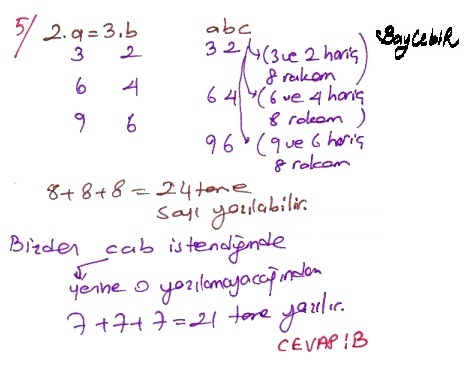 5/ 2.a=3.b abc BayCebir
3 2 32 → (3 ve 2 hariç
8 rakam)
6 4 64 → (6 ve 4 hariç
8 rakam)
9 6 96 → (9 ve 6 hariç
8 rakam
8+8+8=24 tane
sayı yazılabilir.
Bizden cab istendiğinde
yerine 0 yazılamayacağından
7+7+7=21 tane yazılır.
CEVAP:B